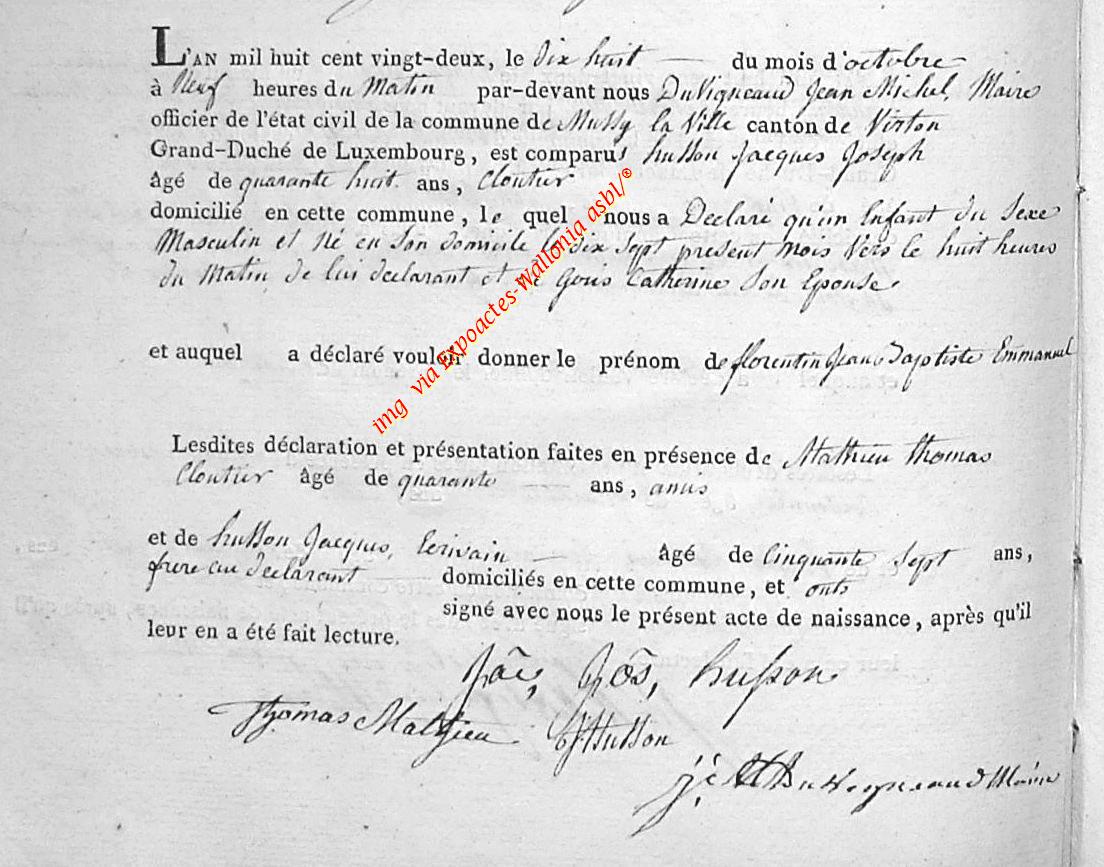 L'AN mil huit cent vingt-deux, le dix huit du mois d'octobre
à Neuf heures du Matin par-devant nous DuVigneaud Jean Michel, Maire
officier de l'état civil de la commune de Mussy la Ville canton de Virton
Grand-Duché de Luxembourg, est comparus husson Jacques Joseph
âgé de quarante huit ans, Cloutier
domicilié en cette commune, le quel nous a Declaré qu'un Enfant du Sexe
Masculin et Né en Son domicile le dix Sept present mois Vers le huit heures
du Matin, de lui declarant et de Goris Catherine Son Epouse.
et auquel a déclaré vouloir donner le prénom de florentin Jean Baptiste Emmanuel
Lesdites déclaration et présentation faites en présence de Mathieu thomas
Cloutier âgé de quarante ans, amis
et de husson Jacques, Ecrivain âgé de Cinquante Sept ans,
frere au declarant domiciliés en cette commune, et onts
signé avec nous le présent acte de naissance, après qu'il
leur en a été fait lecture.
Jac, Jos, husson
Thomas Mathieu Husson
Duvigneaud Maire
img via Expoactes-Wallonia asbl/®